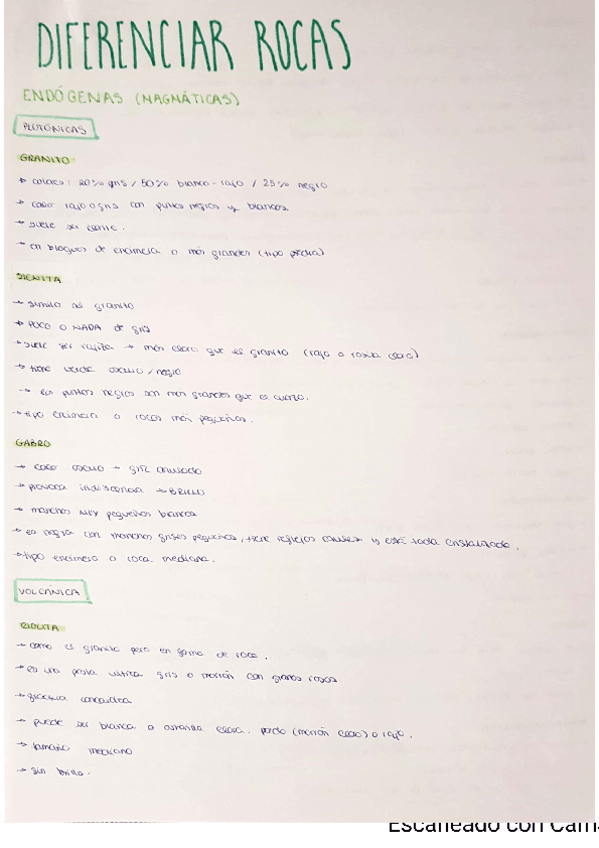 DIFERENCIAR ROCAS
ENDÓGENAS (MAGMÁTICAS)
PLUTÓNICAS
GRANITO
→ colores: 20% gris / 50% blanco - rojo / 25% negro
→ color rojo o gris con puntos negros y blancos.
→ suele ser
→ en bloques de encimera o más grandes (tipo piedra)
SIENITA
→ similar al granito
→ POCO O NADA de gris
→ suele ser rojiza → más claro que el granito (rojo o rosita claro)
→ tiene verde oscuro / negro
→ los puntos negros son más grandes que el cuarzo.
→ tipo encimera o rocas más pequeñas.
GABRO
→ color oscuro → gris
→ provoca → BRILLO
→ manchas muy pequeñas blancas
→ es negra con manchas grises pequeñas, tiene reflejos y está toda cristalizada.
→ tipo encimera o roca mediana.
VOLCÁNICA
RIOLITA
→ como el granito pero en forma de roca.
→ es una pasta vítrea gris o marrón con granos rosas
→
→ puede ser blanca o amarilla clara, pardo (marrón claro) o rojo.
→ tamaño mediano
→ sin brillo.
Escaneado con Cam